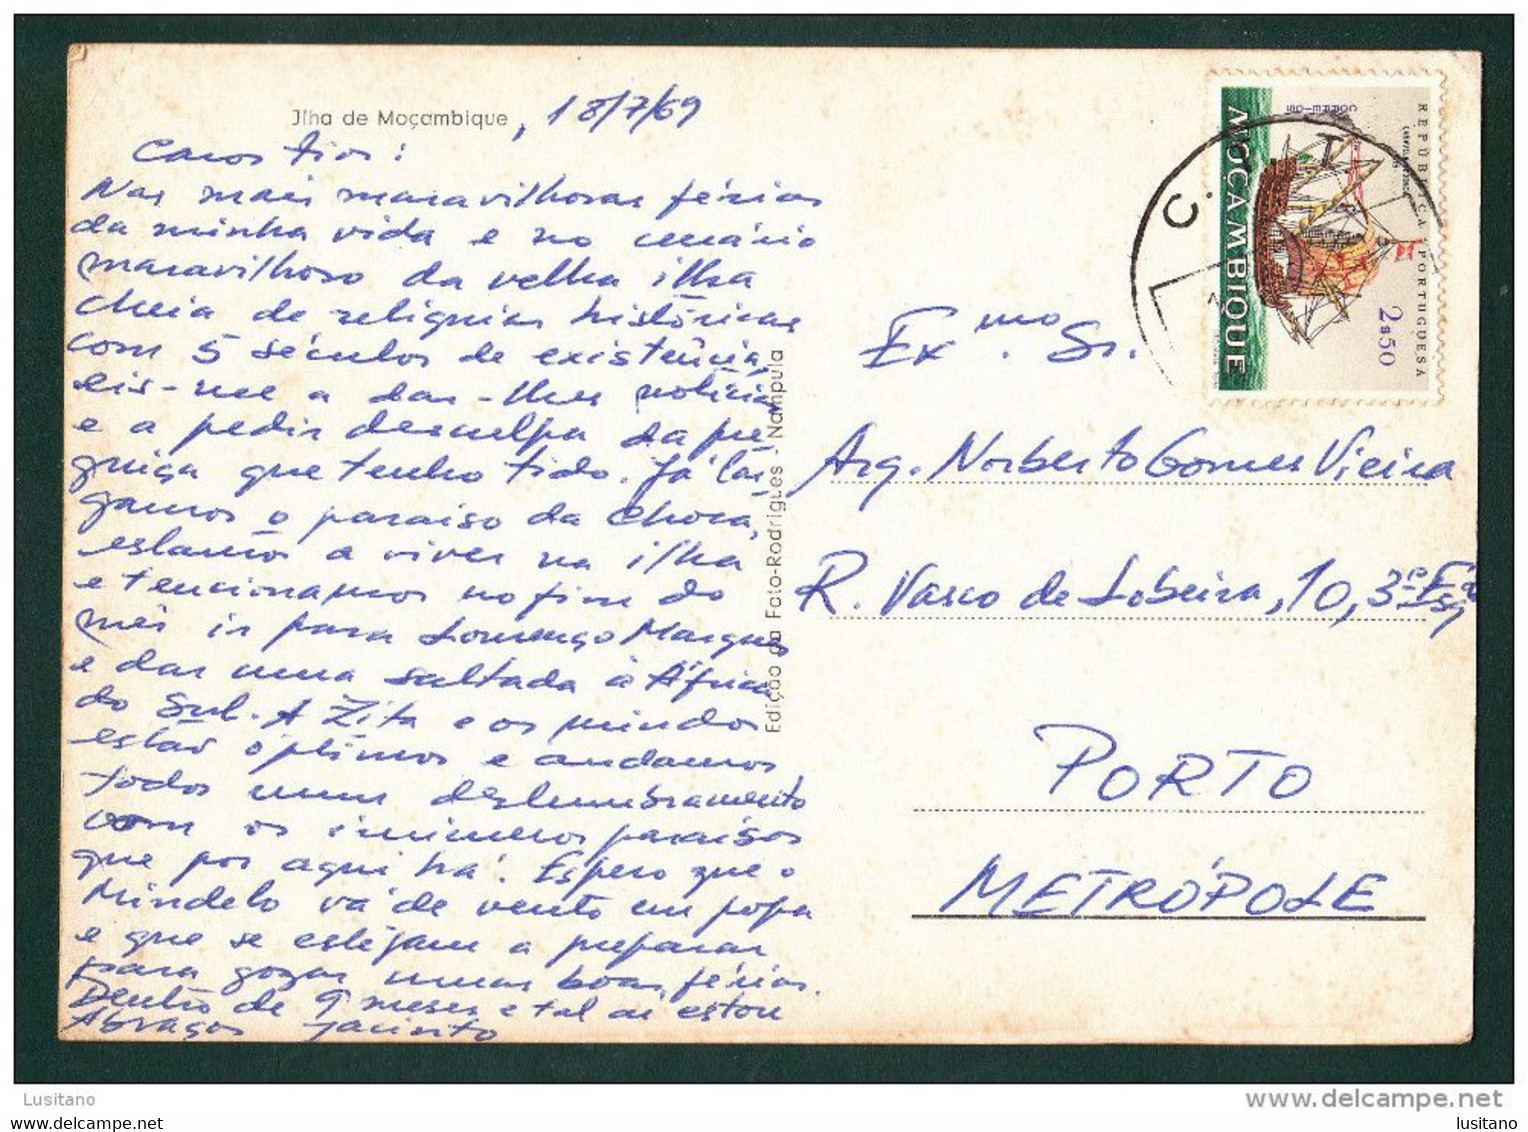 Jlha de Moçambique, 18/7/69
Caros tios:
Nas mais maravilhosas férias
da minha vida e no cenário
maravilhoso da velha ilha
cheia de relíquias históricas
com 5 séculos de existência,
eis-me a dar-lhes notícias
e a pedir desculpa da pre-
guiça que tenho tido. Já lar-
gamos o paraíso da choca,
estamos a viver na ilha
e tencionamos no fim do
mês ir para Lourenço Marques
e dar uma saltada à África
do Sul. A Zita e os miúdos
estão óptimos e andamos
todos num deslumbramento
com os inúmeros paraísos
que por aqui há. Espero que o
Mindelo vá de vento em popa
e que se estejam a preparar
para gozar umas boas férias.
Dentro de 9 meses e tal aí estou
Abraços Jacinto
Edição da Foto-Rodrigues - Nampula
REPÚBLICA PORTUGUESA
MOÇAMBIQUE
2$50
Exmo. Sr.
Arq. Norberto Gomes Vieira
R. Vasco de Lobeira, 10, 3º Esq
PORTO
METRÓPOLE
Lusitano
www.delcampe.net
lusitano
www.delcampe.com
lusitano